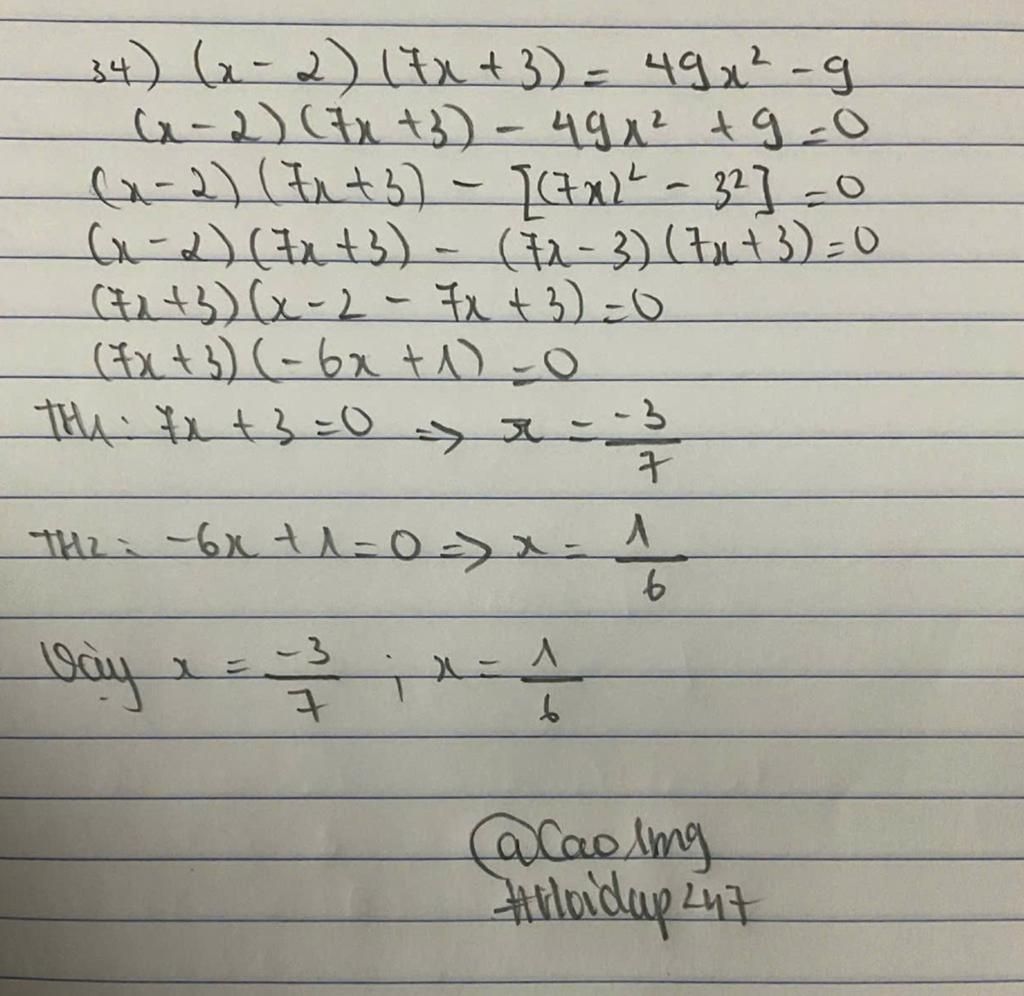 34) (x - 2) (7x + 3) = 49x² - 9
(x - 2) (7x + 3) - 49x² + 9 = 0
(x - 2) (7x + 3) - [(7x)² - 3²] = 0
(x - 2) (7x + 3) - (7x - 3) (7x + 3) = 0
(7x + 3) (x - 2 - 7x + 3) = 0
(7x + 3) (- 6x + 1) = 0
TH1: 7x + 3 = 0 => x = -3/7
TH2: -6x + 1 = 0 => x = 1/6
Vậy x = -3/7 ; x = 1/6
@Cao1mg
#Hoidap247